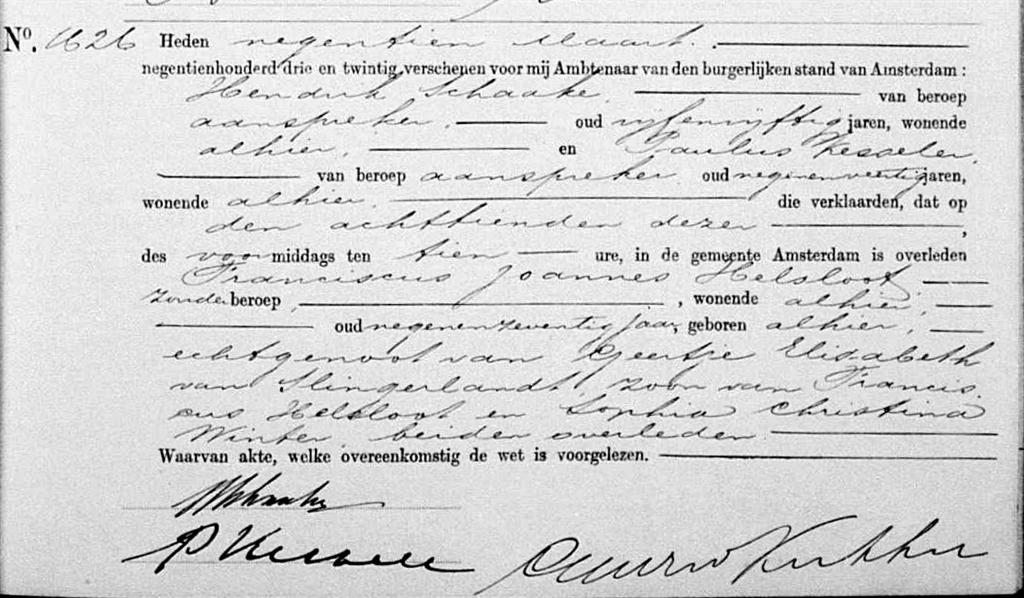 No. 1626 Heden negentien Maart.
negentienhonderd drie en twintig, verschenen voor mij Ambtenaar van den burgerlijken stand van Amsterdam:
Hendrik Schaake, van beroep
aanspreker, oud vijfenvijftig jaren, wonende
alhier, en Paulus Kesseler,
van beroep aanspreker, oud negenenveertig jaren,
wonende alhier, die verklaarden, dat op
den achttienden dezer,
des voormiddags ten tien ure, in de gemeente Amsterdam is overleden
Franciscus Joannes Helsloot,
zonder beroep, , wonende alhier,
oud negenenzeventig jaar, geboren alhier,
echtgenoot van Geertje Elisabeth
van Slingerlandt, zoon van Francis
cus Helsloot en Sophia Christina
Winter, beiden overleden.
Waarvan akte, welke overeenkomstig de wet is voorgelezen.
HSchaake
P Kesseler